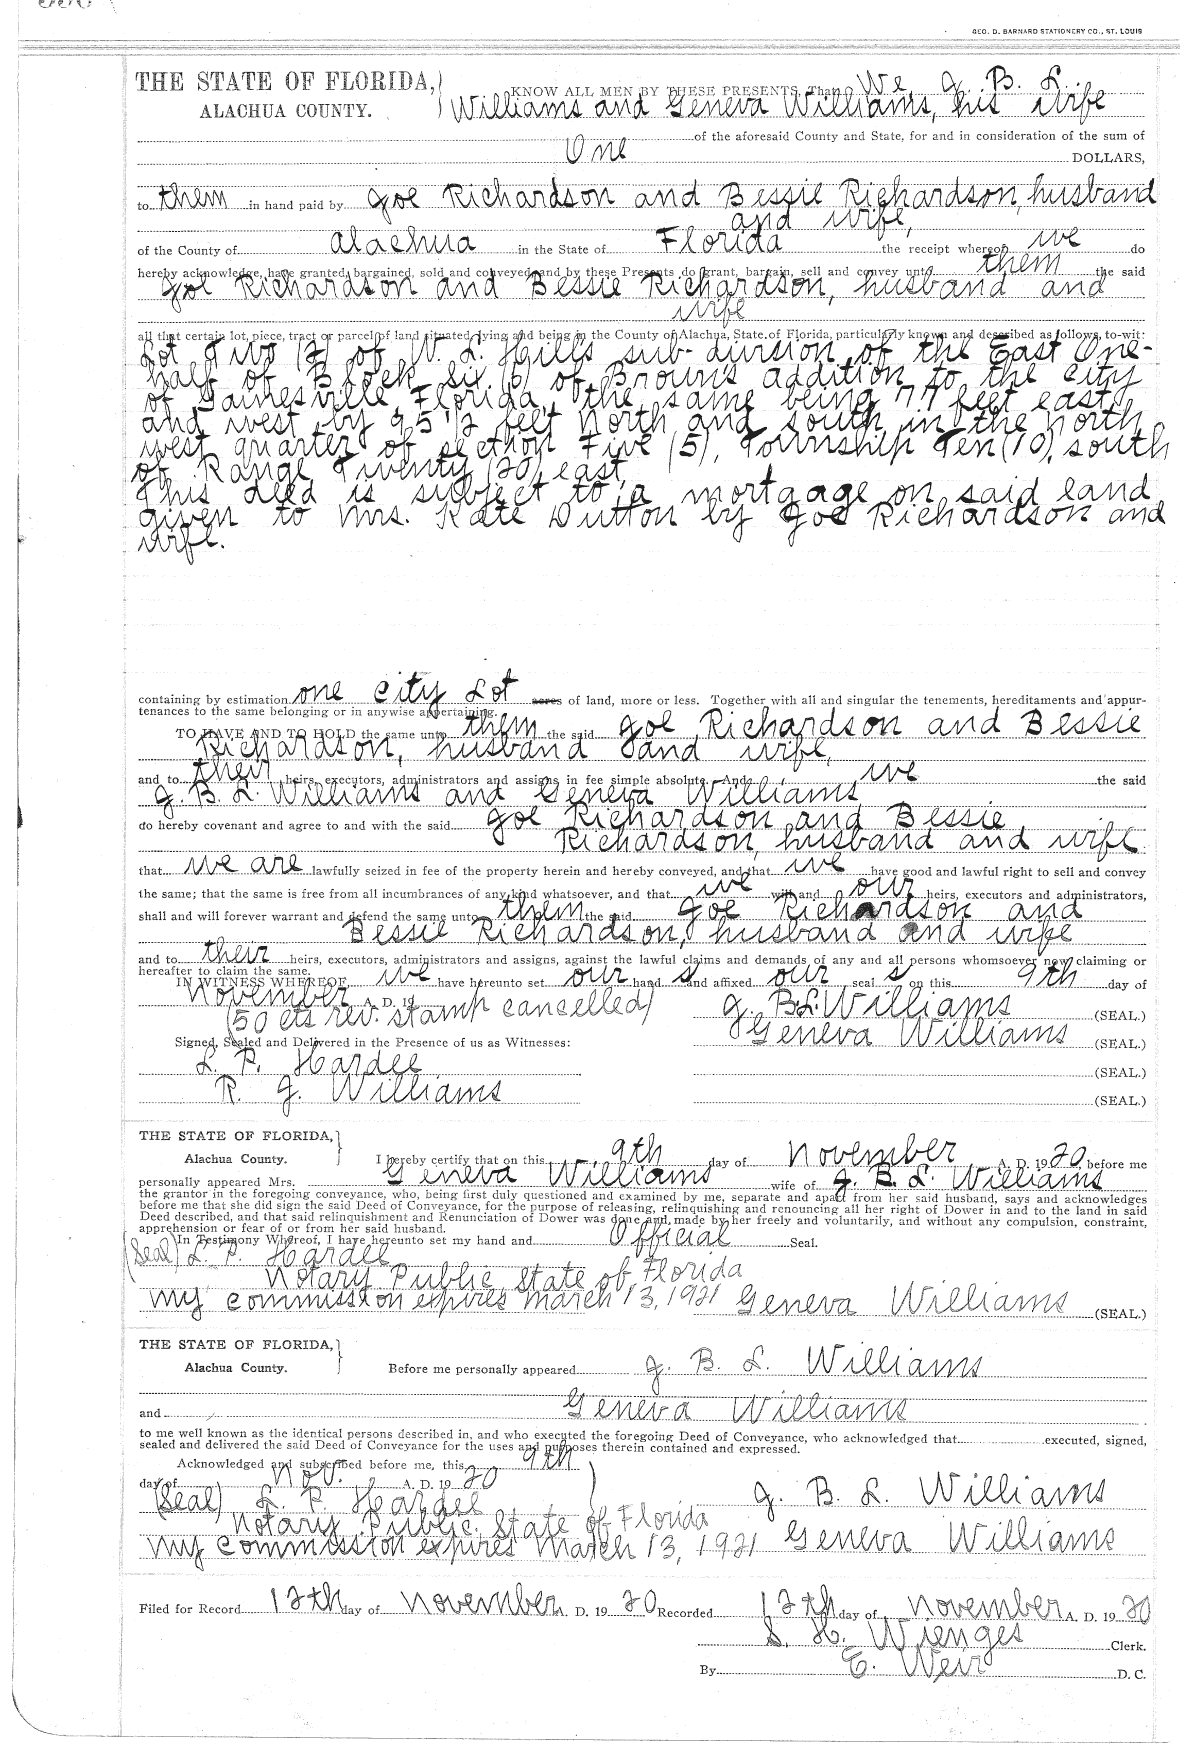 GEO. D. BARNARD STATIONERY CO., ST. LOUIS
THE STATE OF FLORIDA,
ALACHUA COUNTY.
KNOW ALL MEN BY THESE PRESENTS, That We, J. B. L.
Williams and Geneva Williams, his wife
of the aforesaid County and State, for and in consideration of the sum of
One DOLLARS,
to them in hand paid by Joe Richardson and Bessie Richardson, husband
and wife,
of the County of Alachua in the State of Florida the receipt whereof we do
hereby acknowledge, have granted, bargained, sold and conveyed, and by these Presents do grant, bargain, sell and convey unto them the said
Joe Richardson and Bessie Richardson, husband and
wife
all that certain lot, piece, tract or parcel of land situated, lying and being in the County of Alachua, State of Florida, particularly known and described as follows, to-wit:
Lot Two (2) of W. L. Hills sub-division of the East One-
half of Block Six (6) of Brown's addition to the city
of Gainesville Florida, the same being 77 feet east
and west by 95 1/2 feet North and south in the north
west quarter of section Five (5), Township Ten (10), south
of Range Twenty (20) east,
This deed is subject to a mortgage on said land
given to Mrs. Kate Dutton by Joe Richardson and
wife.
containing by estimation one City Lot acres of land, more or less. Together with all and singular the tenements, hereditaments and appur-
tenances to the same belonging or in anywise appertaining.
TO HAVE AND TO HOLD the same unto them the said Joe Richardson and Bessie
Richardson, husband and wife,
and to their heirs, executors, administrators and assigns in fee simple absolute. And we the said
J. B. L. Williams and Geneva Williams
do hereby covenant and agree to and with the said Joe Richardson and Bessie
Richardson, husband and wife
that we are lawfully seized in fee of the property herein and hereby conveyed, and that we have good and lawful right to sell and convey
the same; that the same is free from all incumbrances of any kind whatsoever, and that we will and our heirs, executors and administrators,
shall and will forever warrant and defend the same unto them the said Joe Richardson and
Bessie Richardson, husband and wife
and to their heirs, executors, administrators and assigns, against the lawful claims and demands of any and all persons whomsoever now claiming or
hereafter to claim the same.
IN WITNESS WHEREOF, we have hereunto set our hand s and affixed our seal s on this 9th day of
November A. D. 19
(50 cts rev. stamp cancelled) J. B. L. Williams (SEAL.)
Geneva Williams (SEAL.)
Signed, Sealed and Delivered in the Presence of us as Witnesses:
L. P. Hardee (SEAL.)
R. J. Williams (SEAL.)
THE STATE OF FLORIDA,
Alachua County.
I hereby certify that on this 9th day of November A. D. 1920, before me
personally appeared Mrs. Geneva Williams wife of J. B. L. Williams
the grantor in the foregoing conveyance, who, being first duly questioned and examined by me, separate and apart from her said husband, says and acknowledges
before me that she did sign the said Deed of Conveyance, for the purpose of releasing, relinquishing and renouncing all her right of Dower in and to the land in said
Deed described, and that said relinquishment and Renunciation of Dower was done and made by her freely and voluntarily, and without any compulsion, constraint,
apprehension or fear of or from her said husband.
In Testimony Whereof, I have hereunto set my hand and Official Seal.
(Seal) L. P. Hardee
Notary Public State of Florida
My commission expires March 13, 1921 Geneva Williams (SEAL.)
THE STATE OF FLORIDA,
Alachua County.
Before me personally appeared J. B. L. Williams
and Geneva Williams
to me well known as the identical persons described in, and who executed the foregoing Deed of Conveyance, who acknowledged that executed, signed,
sealed and delivered the said Deed of Conveyance for the uses and purposes therein contained and expressed.
Acknowledged and subscribed before me, this 9th
day of Nov. A. D. 1920
(Seal) L. P. Hardee J. B. L. Williams
Notary Public State of Florida
My commission expires March 13, 1921 Geneva Williams
Filed for Record 12th day of November A. D. 1920 Recorded 12th day of November A. D. 1920
S. H. Wienges Clerk.
By E. Weir D. C.